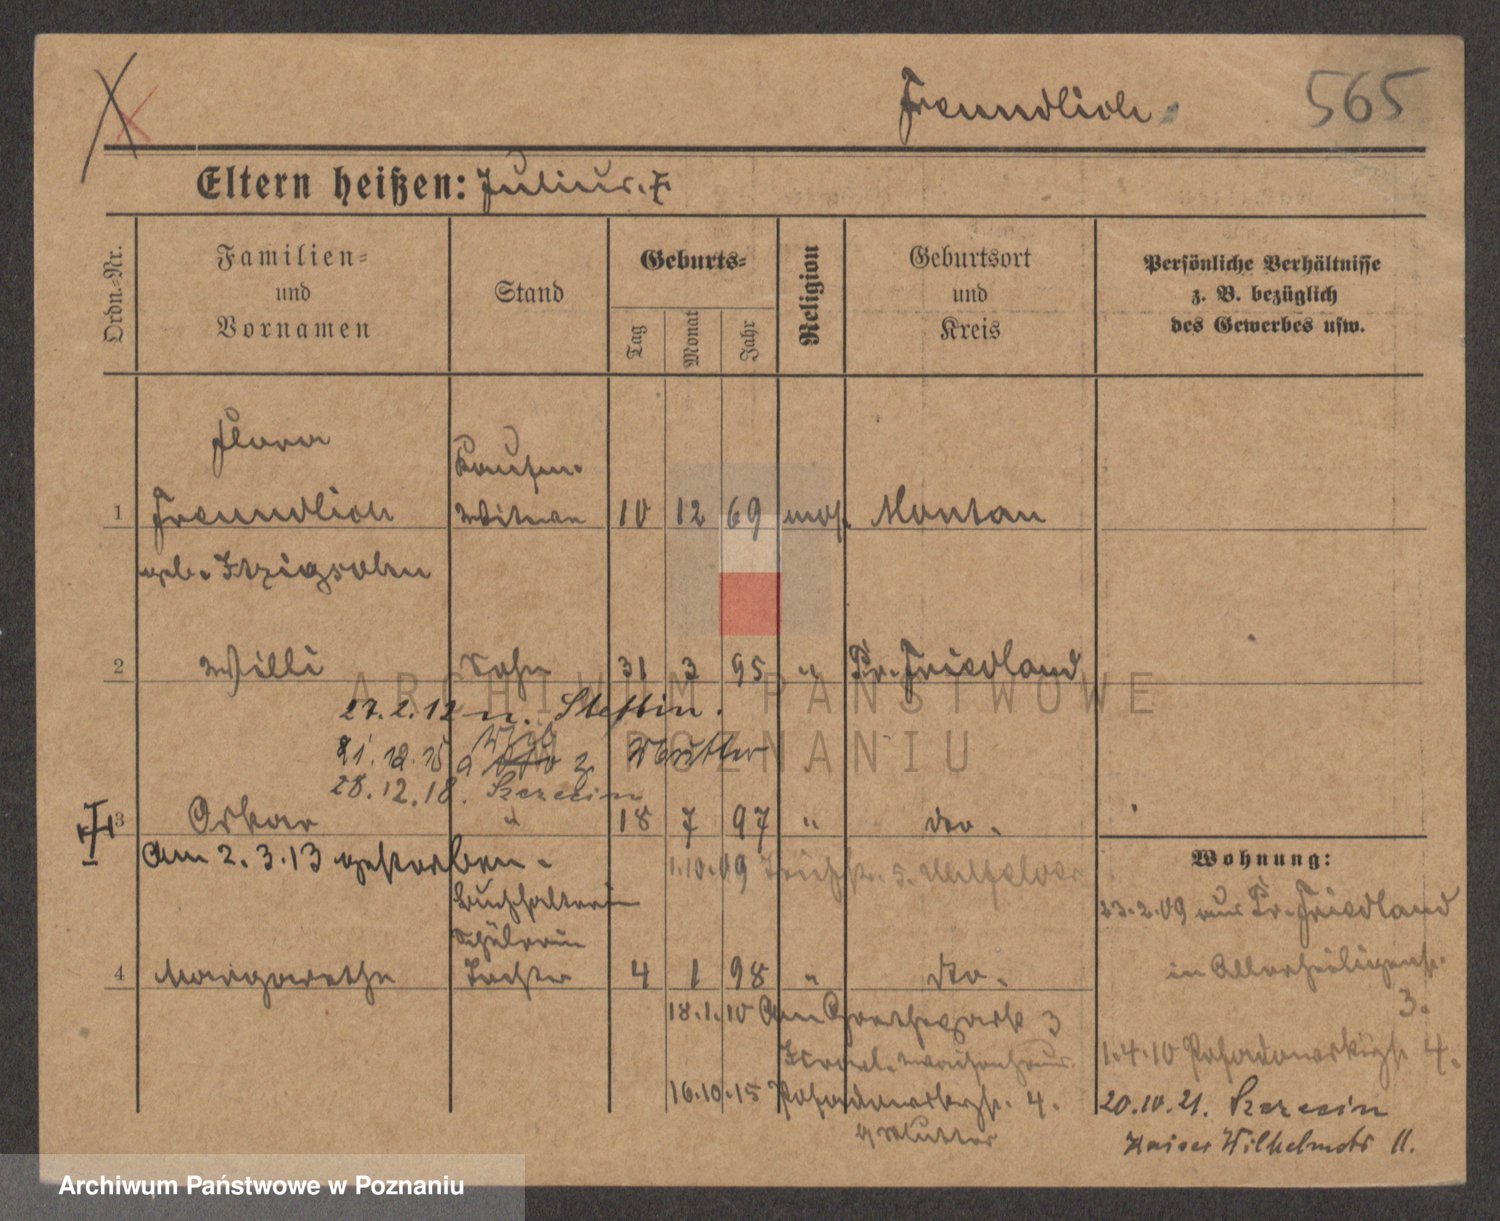 Freundlich
565
Eltern heißen: Julius. F.
Ordn.-Nr.
Familien-
und
Vornamen
Stand
Geburts-
Tag
Monat
Jahr
Religion
Geburtsort
und
Kreis
Persönliche Verhältnisse
z. B. bezüglich
des Gewerbes usw.
Flora
Kaufm.
1 Freundlich Witwe 10 12 69 mos. Montau
geb. Itzigsohn
2 Willi Sohn 31 3 95 " Pr. Friedland
27.2.12 n. Stettin.
21.12.15 z. Mutter
28.12.18. Szczecin
3 Oskar " 18 7 97 " do.
Am 2.3.13 gestorben.
1.10.09 5.
Buchhalterin
Schülerin
4 Margarethe Tochter 4 1 98 " do.
18.1.10 Am 3
Israel. Waisenhaus.
16.10.15 Posadowskystr. 4.
Mutter
Wohnung:
23.2.09 aus Pr. Friedland
in Allerheiligenstr.
3.
1.4.10 Posadowskystr. 4.
20.10.21. Szczecin
Kaiser Wilhelmstr 11.
ARCHIWUM PAŃSTWOWE
W POZNANIU
Archiwum Państwowe w Poznaniu